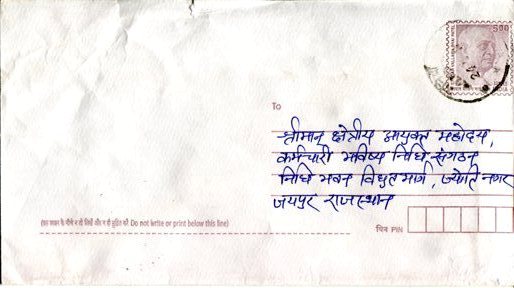 500
To
श्रीमान् क्षेत्रीय आयुक्त महोदय,
कर्मचारी भविष्य निधि संगठन
निधि भवन विधुत मार्ग, ज्योति नगर
जयपुर राजस्थान
(इस लाइन के नीचे न तो लिखें और न ही मुद्रित करें Do not write or print below this line)
पिन PIN